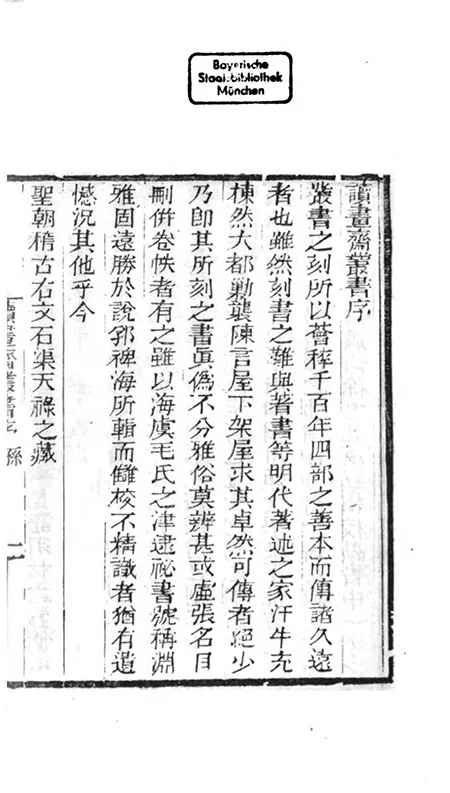 Bayerische
Staatsbibliothek
München
讀畫齋叢書序
叢書之刻所以薈稡千百年四部之善本而傳諸久遠
者也雖然刻書之難與著書等明代著述之家汗牛充
棟然大都勦襲陳言屋下架屋求其卓然可傳者絕少
乃即其所刻之書眞僞不分雅俗莫辨甚或虛張名目
刪併卷帙者有之雖以海虞毛氏之津逮祕書號稱淵
雅固遠勝於說郛稗海所輯而讎校不精識者猶有遺
憾況其他乎今
聖朝稽古右文石渠天祿之藏